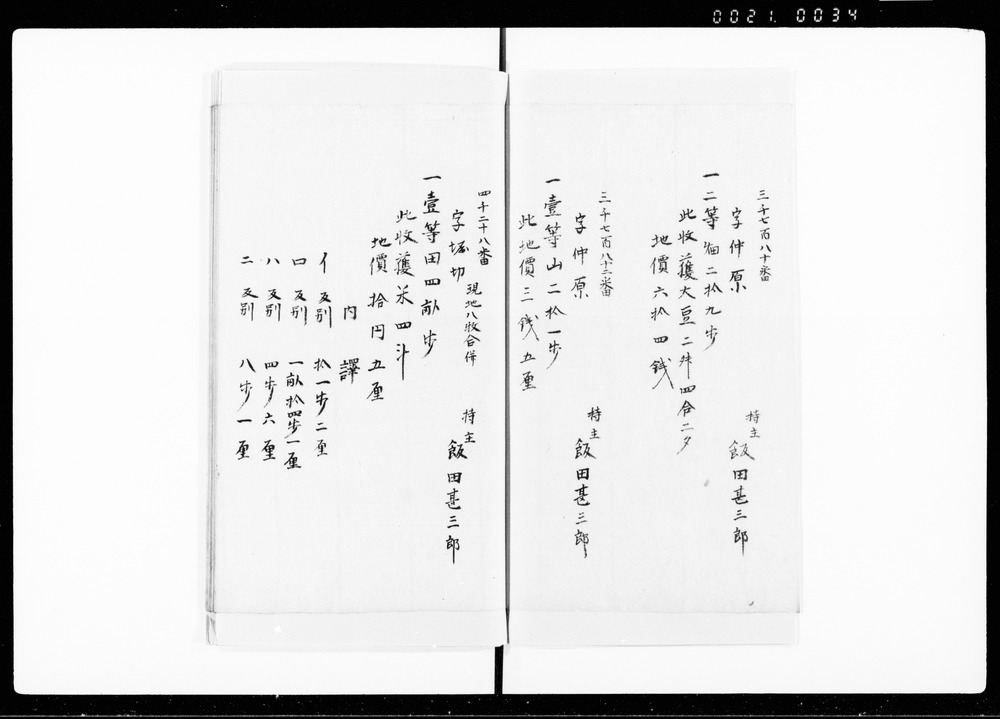 0021.0034
三千七百八十番
字仲原
持主 飯田甚三郎
一二等畑二拾九歩
此收獲大豆二升四合二夕
地價六拾四錢
三千七百八十二番
字仲原
持主 飯田甚三郎
一壹等山二拾一歩
此地價三錢五厘
四千二十八番
字堀切 現地八牧合併
持主 飯田甚三郎
一壹等田四畝歩
此收獲米四斗
地價拾円五厘
内譯
イ 反別 拾一歩二厘
ロ 反別 一畝拾四歩一厘
ハ 反別 四歩六厘
ニ 反別 八歩一厘